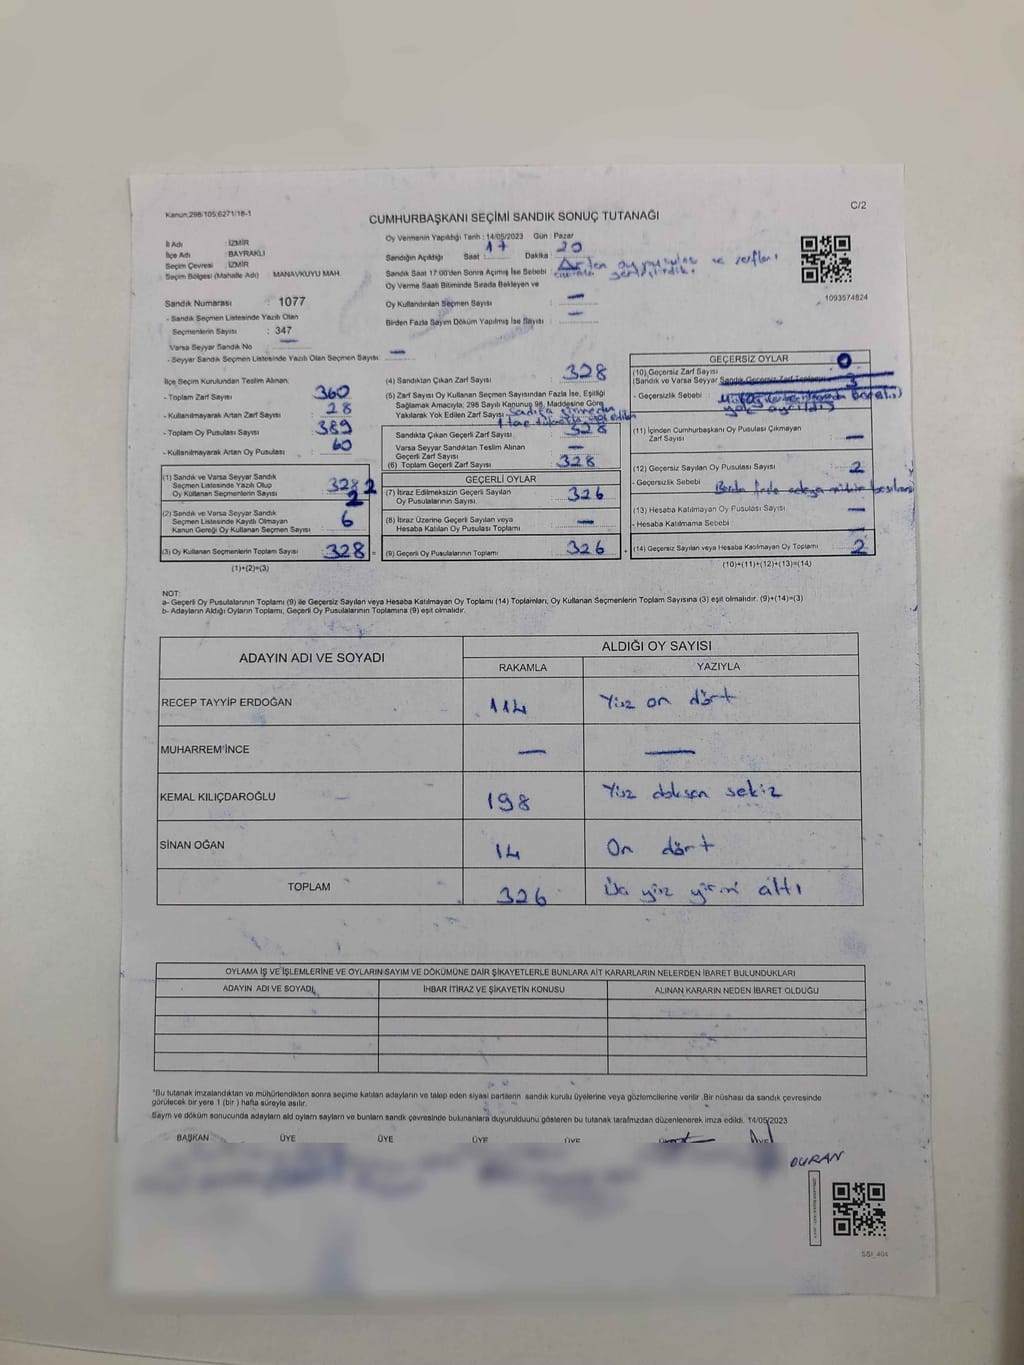 Kanun:298/105;6271/18-1
C/2
CUMHURBAŞKANI SEÇİMİ SANDIK SONUÇ TUTANAĞI
İl Adı : İZMİR
İlçe Adı : BAYRAKLI
Seçim Çevresi : İZMİR
Seçim Bölgesi (Mahalle Adı) : MANAVKUYU MAH.
Sandık Numarası : 1077
- Sandık Seçmen Listesinde Yazılı Olan
Seçmenlerin Sayısı : 347
Varsa Seyyar Sandık No —
- Seyyar Sandık Seçmen Listesinde Yazılı Olan Seçmen Sayısı: —
Oy Vermenin Yapıldığı Tarih : 14/05/2023 Gün : Pazar
Sandığın Açıldığı Saat : 17 Dakika : 20
Sandık Saat 17:00'den Sonra Açılmış İse Sebebi : Artan oy ve zarfları
Oy Verme Saati Bitiminde Sırada Bekleyen ve
Oy Kullandırılan Seçmen Sayısı : —
Birden Fazla Sayım Döküm Yapılmış İse Sayısı : —
1093574824
İlçe Seçim Kurulundan Teslim Alınan;
- Toplam Zarf Sayısı : 360
- Kullanılmayarak Artan Zarf Sayısı : 28
- Toplam Oy Pusulası Sayısı : 389
- Kullanılmayarak Artan Oy Pusulası : 60
(1) Sandık ve Varsa Seyyar Sandık
Seçmen Listesinde Yazılı Olup
Oy Kullanan Seçmenlerin Sayısı
(2) Sandık ve Varsa Seyyar Sandık
Seçmen Listesinde Kayıtlı Olmayan
Kanun Gereği Oy Kullanan Seçmen Sayısı : 6
(3) Oy Kullanan Seçmenlerin Toplam Sayısı : 328 =
(1)+(2)=(3)
(4) Sandıktan Çıkan Zarf Sayısı : 328
(5) Zarf Sayısı Oy Kullanan Seçmen Sayısından Fazla İse, Eşitliği
Sağlamak Amacıyla; 298 Sayılı Kanunun 98. Maddesine Göre
Yakılarak Yok Edilen Zarf Sayısı :
Sandıkta Çıkan Geçerli Zarf Sayısı : 328
Varsa Seyyar Sandıktan Teslim Alınan
Geçerli Zarf Sayısı : —
(6) Toplam Geçerli Zarf Sayısı : 328
GEÇERLİ OYLAR
(7) İtiraz Edilmeksizin Geçerli Sayılan
Oy Pusulasının Sayısı : 326
(8) İtiraz Üzerine Geçerli Sayılan veya
Hesaba Katılan Oy Pusulası Toplamı : —
(9) Geçerli Oy Pusulalarının Toplamı : 326 +
GEÇERSİZ OYLAR
(10) Geçersiz Zarf Sayısı : 0
(Sandık ve Varsa Seyyar Sandık Geçersiz Zarf Toplamı) 3
- Geçersizlik Sebebi :
(11) İçinden Cumhurbaşkanı Oy Pusulası Çıkmayan
Zarf Sayısı : —
(12) Geçersiz Sayılan Oy Pusulası Sayısı : 2
- Geçersizlik Sebebi : Birden fazla adaya mühür basılması
(13) Hesaba Katılmayan Oy Pusulası Sayısı : —
- Hesaba Katılmama Sebebi : —
(14) Geçersiz Sayılan veya Hesaba Katılmayan Oy Toplamı : 2
(10)+(11)+(12)+(13)=(14)
NOT:
a- Geçerli Oy Pusulalarının Toplamı (9) ile Geçersiz Sayılan veya Hesaba Katılmayan Oy Toplamı (14) Toplamları, Oy Kullanan Seçmenlerin Toplam Sayısına (3) eşit olmalıdır. (9)+(14)=(3)
b- Adayların Aldığı Oyların Toplamı, Geçerli Oy Pusulalarının Toplamına (9) eşit olmalıdır.
ADAYIN ADI VE SOYADI
ALDIĞI OY SAYISI
RAKAMLA YAZIYLA
RECEP TAYYİP ERDOĞAN 114 Yüz on dört
MUHARREM İNCE — —
KEMAL KILIÇDAROĞLU 198 Yüz doksan sekiz
SİNAN OĞAN 14 On dört
TOPLAM 326 Üç yüz yirmi altı
OYLAMA İŞ VE İŞLEMLERİNE VE OYLARIN SAYIM VE DÖKÜMÜNE DAİR ŞİKAYETLERLE BUNLARA AİT KARARLARIN NELERDEN İBARET BULUNDUKLARI
ADAYIN ADI VE SOYADI İHBAR İTİRAZ VE ŞİKAYETİN KONUSU ALINAN KARARIN NEDEN İBARET OLDUĞU
*Bu tutanak imzalandıktan ve mühürlendikten sonra seçime katılan adayların ve talep eden siyasi partilerin sandık kurulu üyelerine veya gözlemcilerine verilir .Bir nüshası da sandık çevresinde
görülecek bir yere 1 (bir ) hafta süreyle asılır.
Sayım ve döküm sonucunda adayların aldığı oyların sayıları ve bunların sandık çevresinde bulunanlara duyurulduğunu gösteren bu tutanak tarafımızdan düzenlenerek imza edildi. 14/05/2023
BAŞKAN ÜYE ÜYE ÜYE ÜYE
DURAN
SSI_404